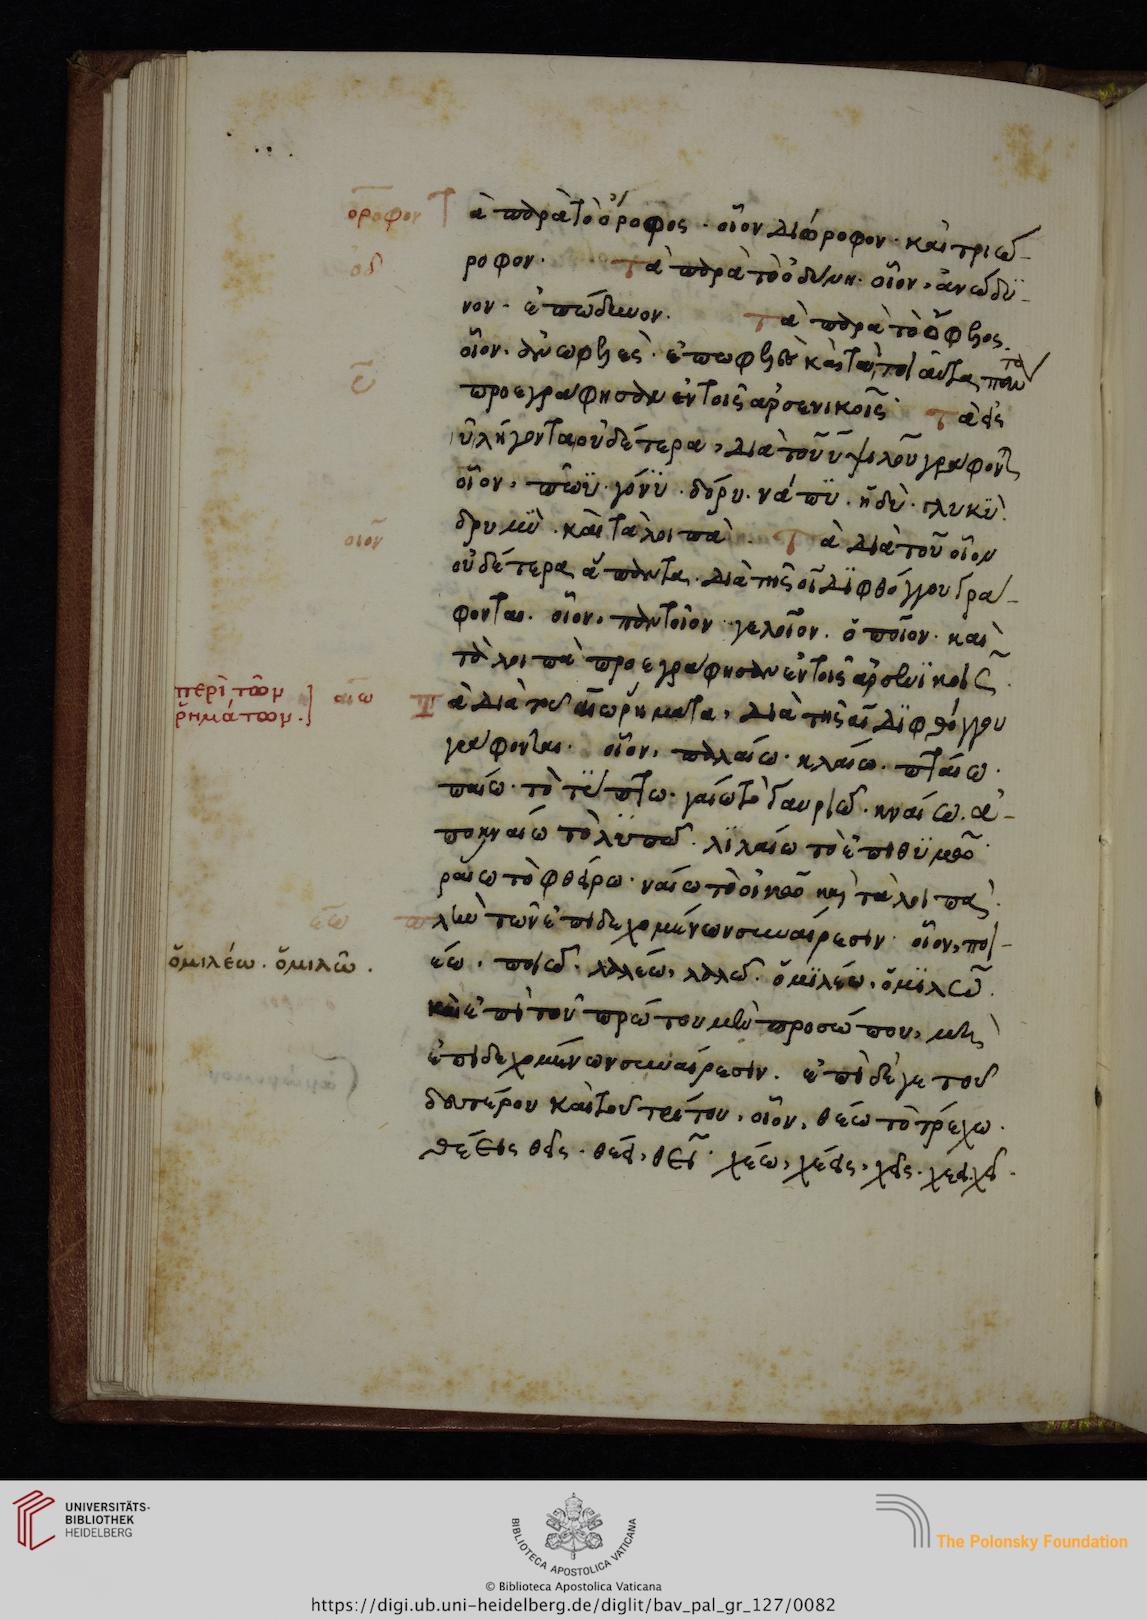 οροφον Τὰ παρὰ τὸ ὄροφος · οἷον διώροφον · καὶ τριώ-
οδ ροφον · Τὰ παρὰ τὸ ὀδύνη · οἷον, ἀνώδυ-
νον · ἐπώδυνον · Τὰ παρὰ τὸ ὄφελος
οἷον · ἀνωφελὲς · ἐπωφελὲς καὶ τὰ
υ προεγράφησαν ἐν τοῖς ἀρσενικοῖς · Τὰ εἰς
υ λήγοντα οὐδέτερα, διὰ τοῦ υ ψιλοῦ γράφοντ
οἷον, πῶϋ · γόνϋ · δόρυ · νάπϋ · ἡδὺ · γλυκῢ ·
οιον δριμῢ · καὶ τὰ λοιπὰ · Τὰ διὰ τοῦ οῖον
οὐδέτερα ἅπαντα · διὰ τῆς οι διφθόγγου γρά-
φονται · οἷον, παντοῖον · γελοῖον · ὁποῖον · καὶ
τὰ λοιπὰ προεγράφησαν ἐν τοῖς ἀρσενικοῖς ·
περὶ τῶν
ῥημάτων.
αιω Τὰ διὰ τοῦ αίω ῥήματα, διὰ τῆς αι διφθόγγου
γράφονται · οἷον, παλαίω · κλαίω · πταίω ·
παίω · τὸ τύπτω · γαίω τὸ γαυριῶ · κναίω · ἀ-
ποκναίω τὸ λυπῶ · λιλαίω τὸ ἐπιθυμῶ ·
ραίω τὸ φθείρω · ναίω τὸ οἰκῶ καὶ τὰ λοιπὰ ·
εω πλὴν τῶν ἐπιδεχομένων συναίρεσιν · οἷον, ποι-
ὁμιλέω · ὁμιλῶ .
έω · ποιῶ · λαλέω, λαλῶ · ὁμϊλέω, ὁμϊλῶ ·
καὶ ἐπὶ τοῦ πρώτου μὲν προσώπου, μὴ
ἐπιδεχομένων συναίρεσιν · ἐπὶ δέ γε τοῦ
δευτέρου καὶ τοῦ τρίτου, οἷον, θέω τὸ τρέχω ·
θέεις θεῖς · θέει, θεῖ · χέω, χέεις, χεῖς · χέει χεῖ ·
UNIVERSITÄTS-
BIBLIOTHEK
HEIDELBERG
BIBLIOTECA APOSTOLICA VATICANA
The Polonsky Foundation
© Biblioteca Apostolica Vaticana
https://digi.ub.uni-heidelberg.de/diglit/bav_pal_gr_127/0082